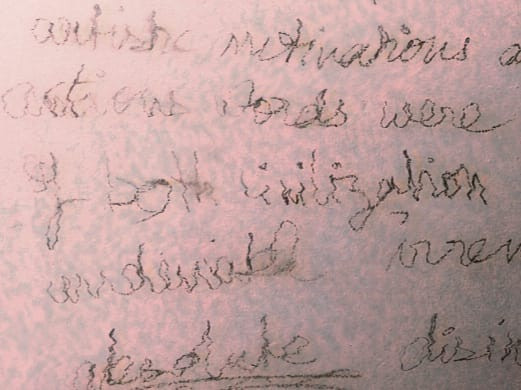 artistic motivations a
actions words were
of both civilization
undeniable irrev
absolute disin